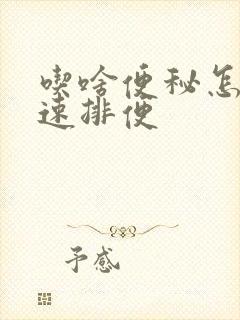 喫啥便秘怎
速排便
予感